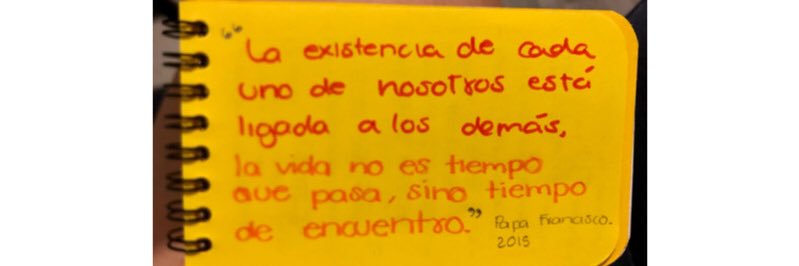 "La existencia de cada
uno de nosotros está
ligada a los demás,
la vida no es tiempo
que pasa, sino tiempo
de encuentro." Papa Francisco.
2015